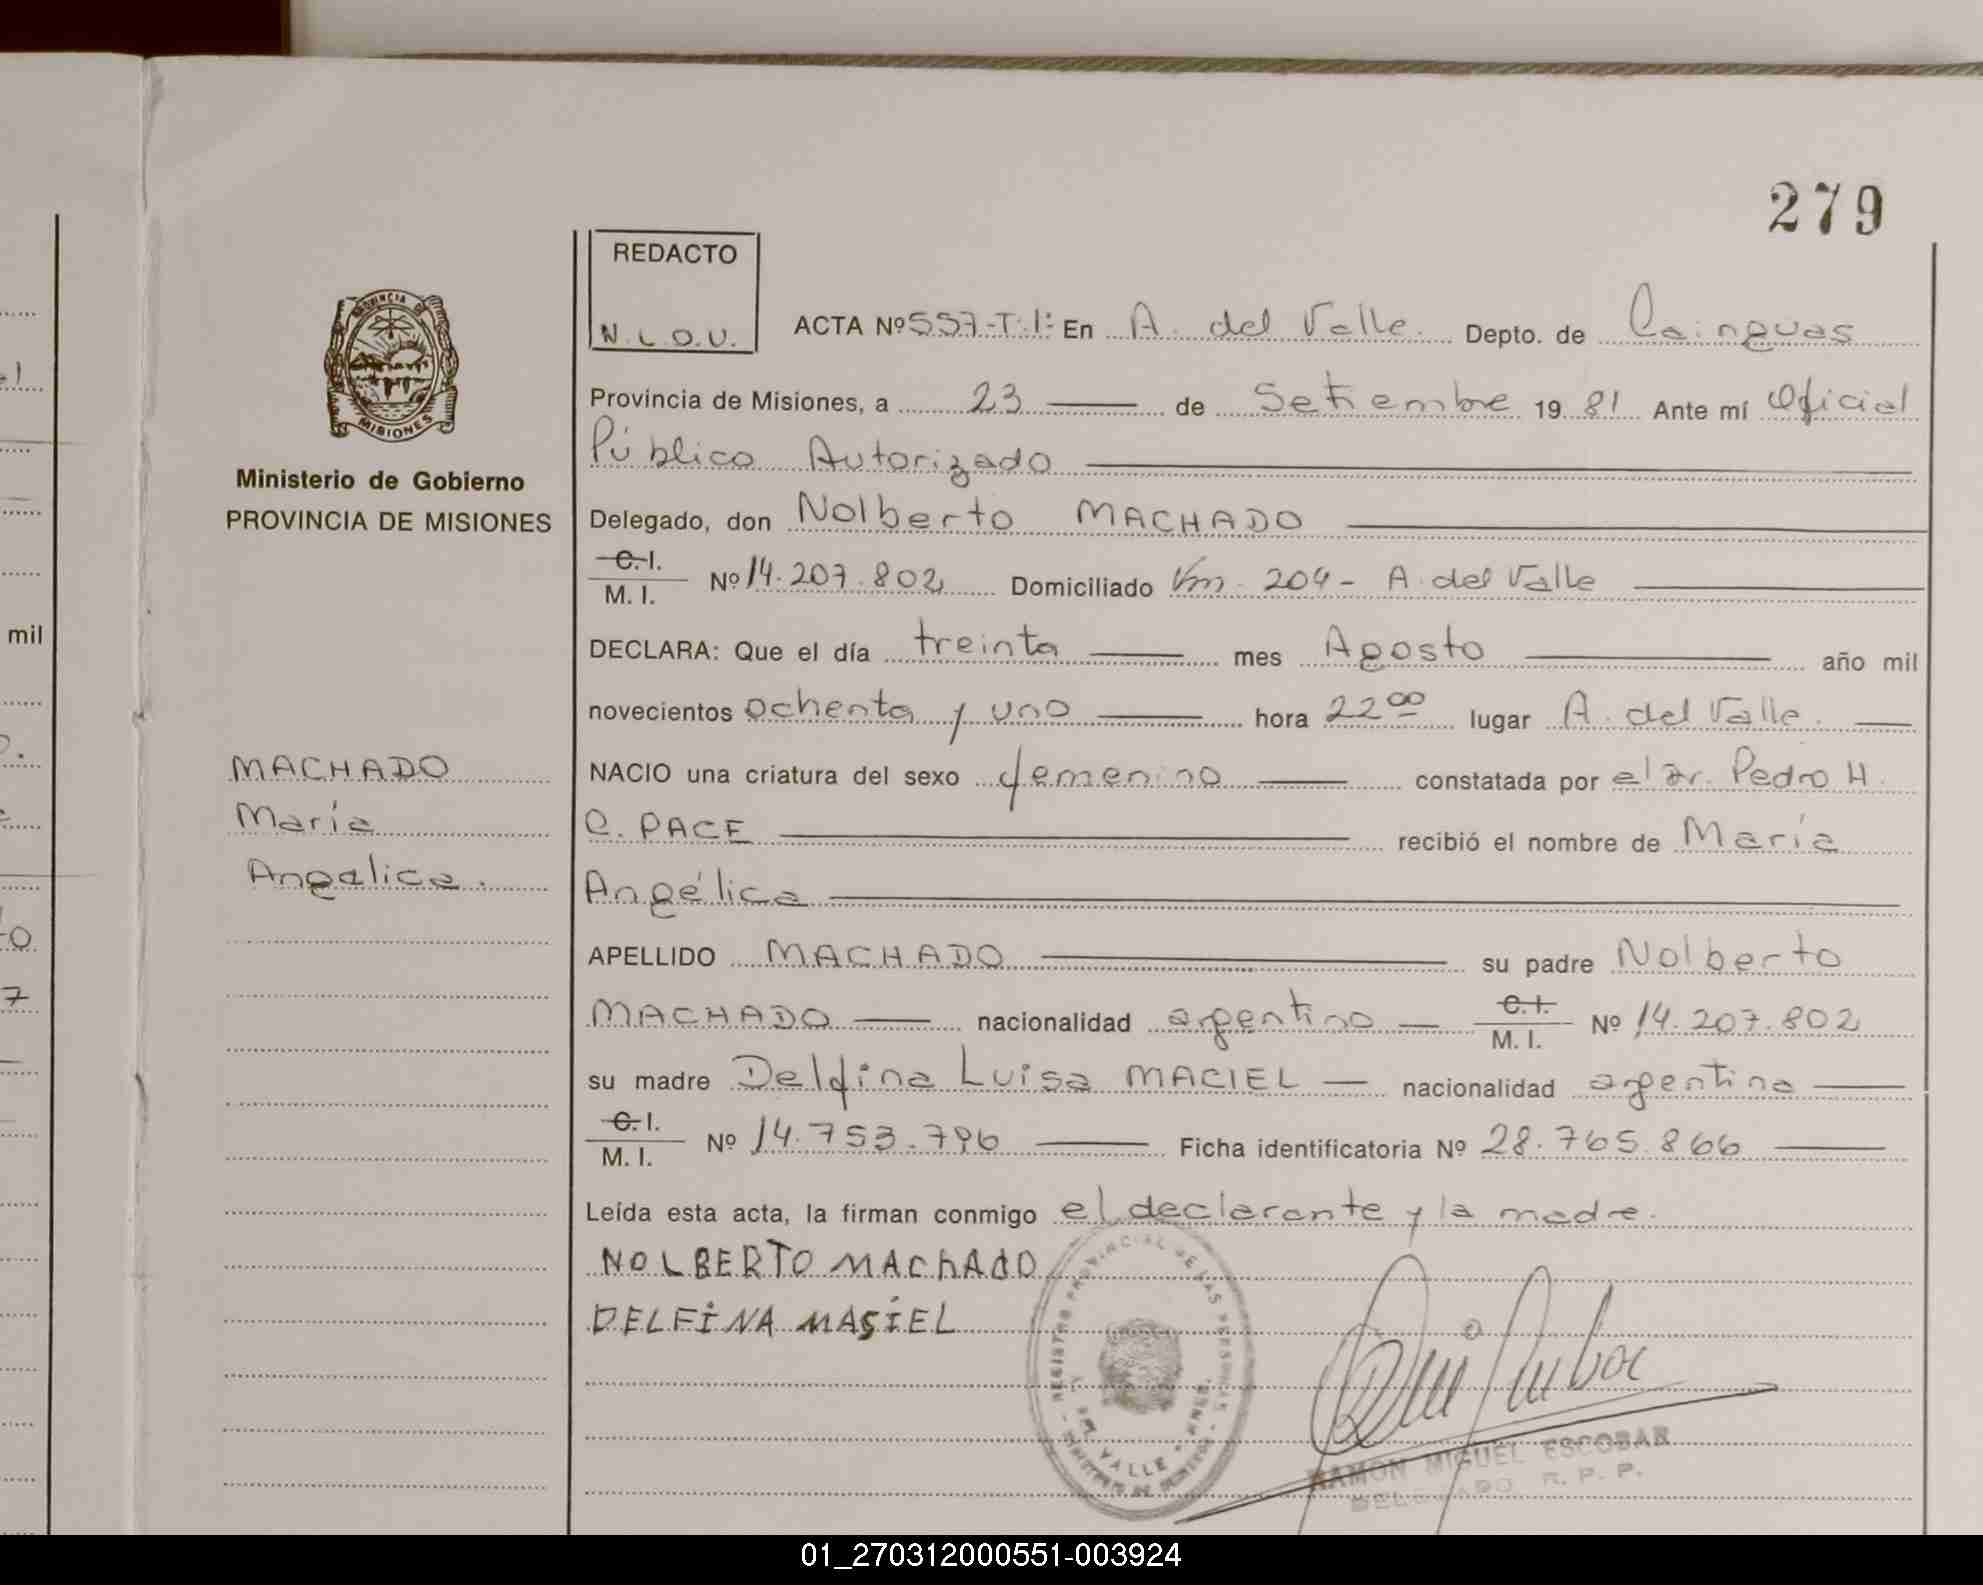 279
REDACTO
N.L.O.U.
ACTA Nº 557-T.I: En A. del Valle. Depto. de Cainguas
Provincia de Misiones, a 23 de Setiembre 1981 Ante mí Oficial
Público Autorizado
Delegado, don Nolberto MACHADO
C.I.
M. I. Nº 14.207.802 Domiciliado Km. 204 - A. del Valle
DECLARA: Que el día treinta mes Agosto año mil
novecientos ochenta y uno hora 22 00 lugar A. del Valle.
NACIO una criatura del sexo femenino constatada por el Dr. Pedro H.
C. PACE recibió el nombre de María
Angélica
APELLIDO MACHADO su padre Nolberto
MACHADO nacionalidad argentino C.I. M. I. Nº 14.207.802
su madre Delfina Luisa MACIEL nacionalidad argentina
C.I.
M. I. Nº 14.753.796 Ficha identificatoria Nº 28.765.866
Leída esta acta, la firman conmigo el declarante y la madre.
NOLBERTO MAChAdO
DELFiNA MASiEL
PROVINCIA DE
MISIONES
Ministerio de Gobierno
PROVINCIA DE MISIONES
MACHADO
María
Angelica.
mil
REGISTRO PROVINCIAL DE LAS PERSONAS
VALLE
RAMON MIGUEL ESCOBAR
DELEGADO R. P. P.
01_270312000551-003924